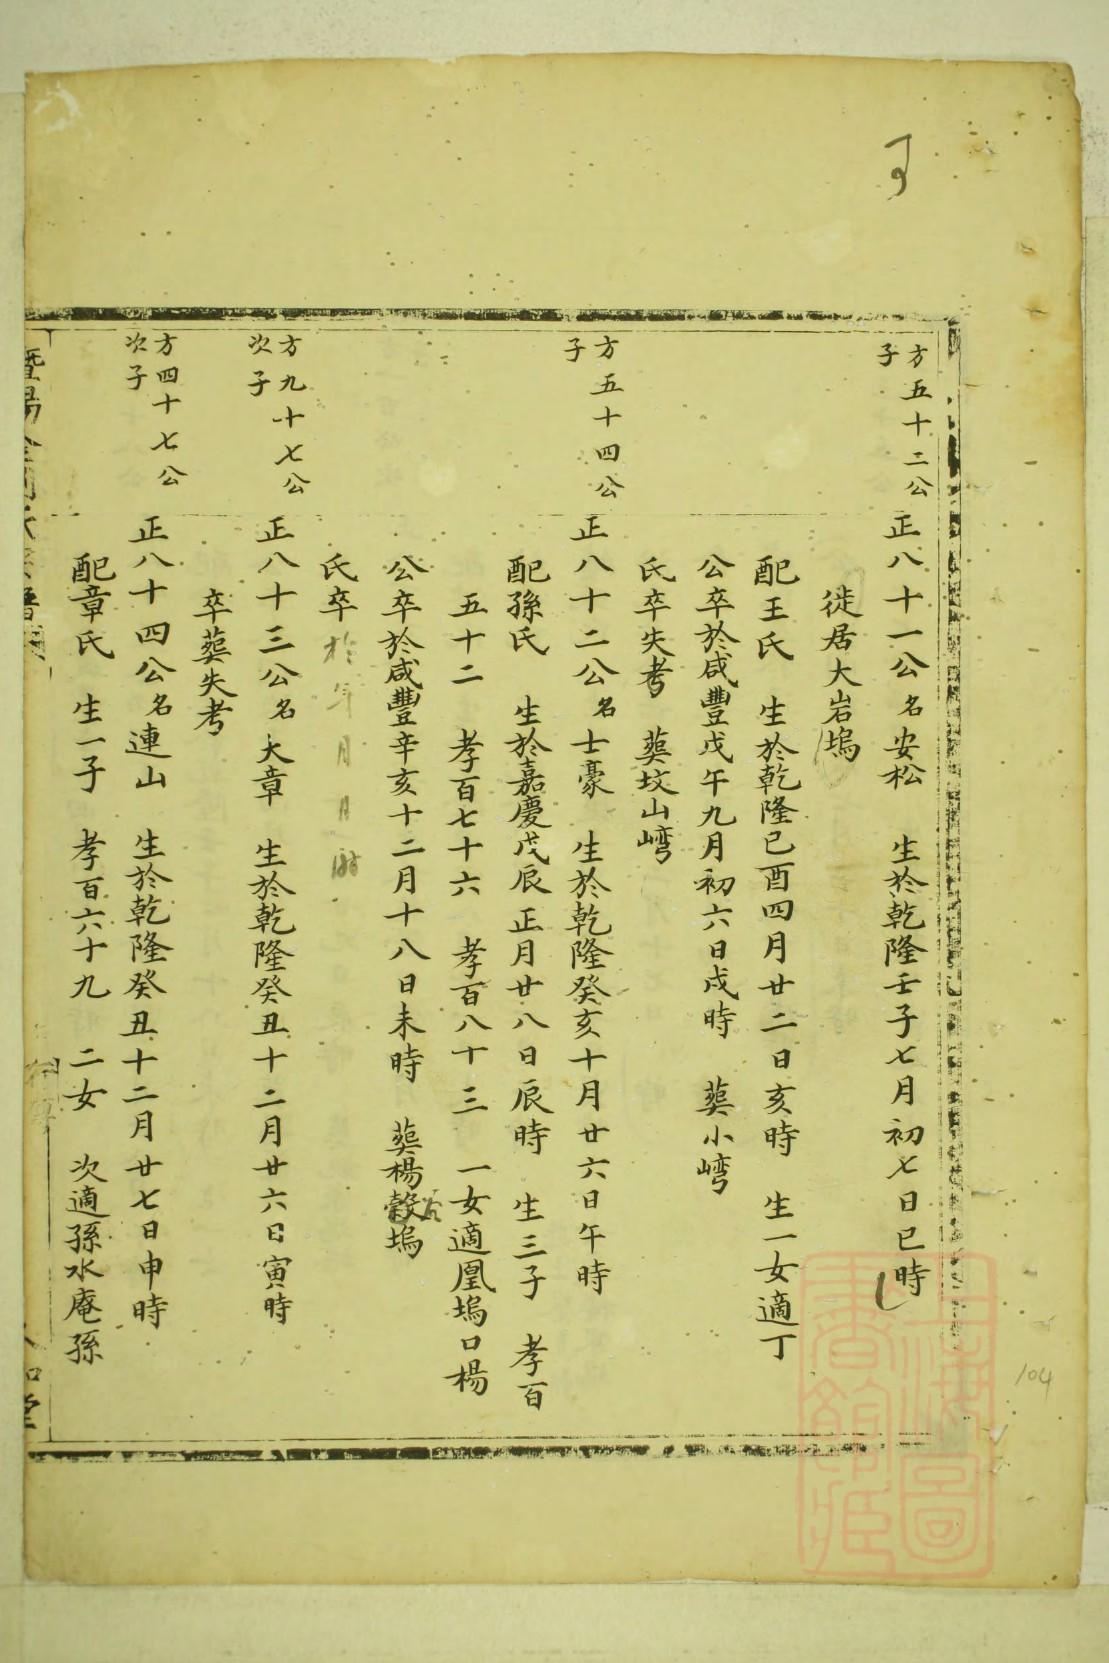 方五十二公
子
正八十一公名安松　生於乾隆壬子七月初七日巳時
徙居大岩塢
配王氏　生於乾隆已酉四月廿二日亥時　生一女適丁
公卒於咸豐戊午九月初六日戌時　葬小嶹
氏卒失考　葬坟山嶹
方五十四公
子
正八十二公名士豪　生於乾隆癸亥十月廿六日午時
配孫氏　生於嘉慶戊辰正月廿八日辰時　生三子　孝百
五十二　孝百七十六　孝百八十三　一女適凰塢口楊
公卒於咸豐辛亥十二月十八日未時　葬楊縠塢
氏卒於年月日時
方九十七公
次子
正八十三公名大章　生於乾隆癸丑十二月廿六日寅時
卒葬失考
方四十七公
次子
正八十四公名連山　生於乾隆癸丑十二月廿七日申時
配章氏　生一子　孝百六十九　二女　次適孫水庵孫
104